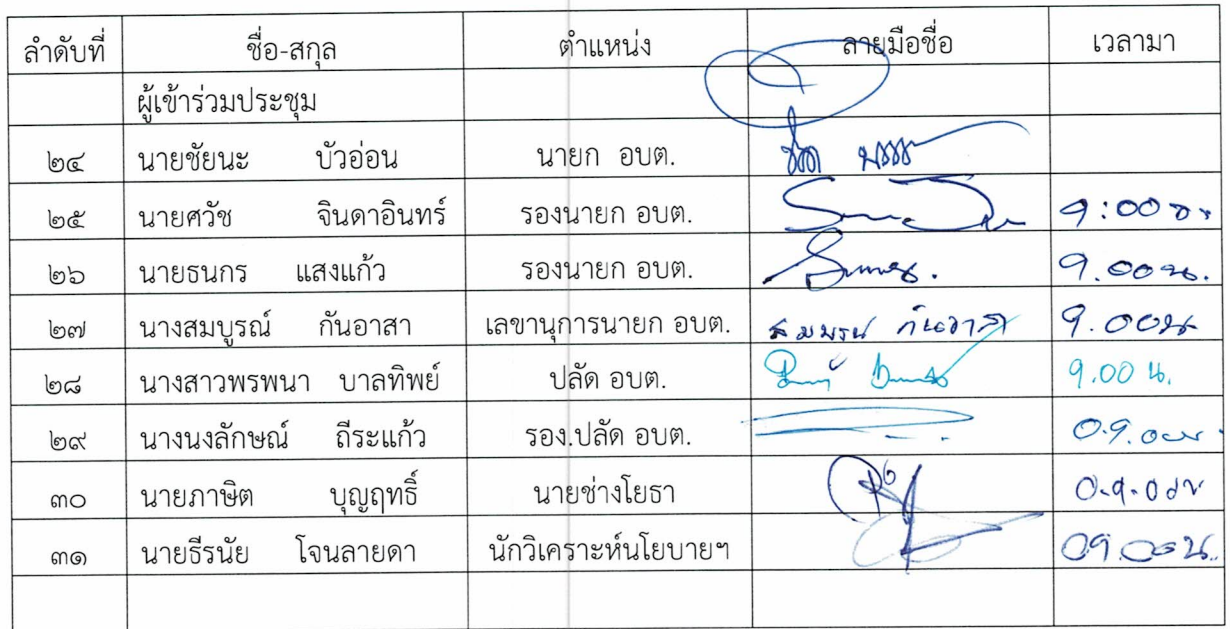 ลำดับที่ ชื่อ-สกุล ตำแหน่ง ลายมือชื่อ เวลามา
ผู้เข้าร่วมประชุม
๒๔ นายชัยนะ บัวอ่อน นายก อบต.
๒๕ นายศวัช จินดาอินทร์ รองนายก อบต. 9:00 น.
๒๖ นายธนกร แสงแก้ว รองนายก อบต. 9.00น.
๒๗ นางสมบูรณ์ กันอาสา เลขานุการนายก อบต. สมบูรณ์ กันอาสา 9.00น
๒๘ นางสาวพรพนา บาลทิพย์ ปลัด อบต. 9.00 น.
๒๙ นางนงลักษณ์ ถีระแก้ว รอง.ปลัด อบต. 09.00น.
๓๐ นายภาษิต บุญฤทธิ์ นายช่างโยธา 09.00น
๓๑ นายธีรนัย โจนลายดา นักวิเคราะห์นโยบายฯ 09.00น.